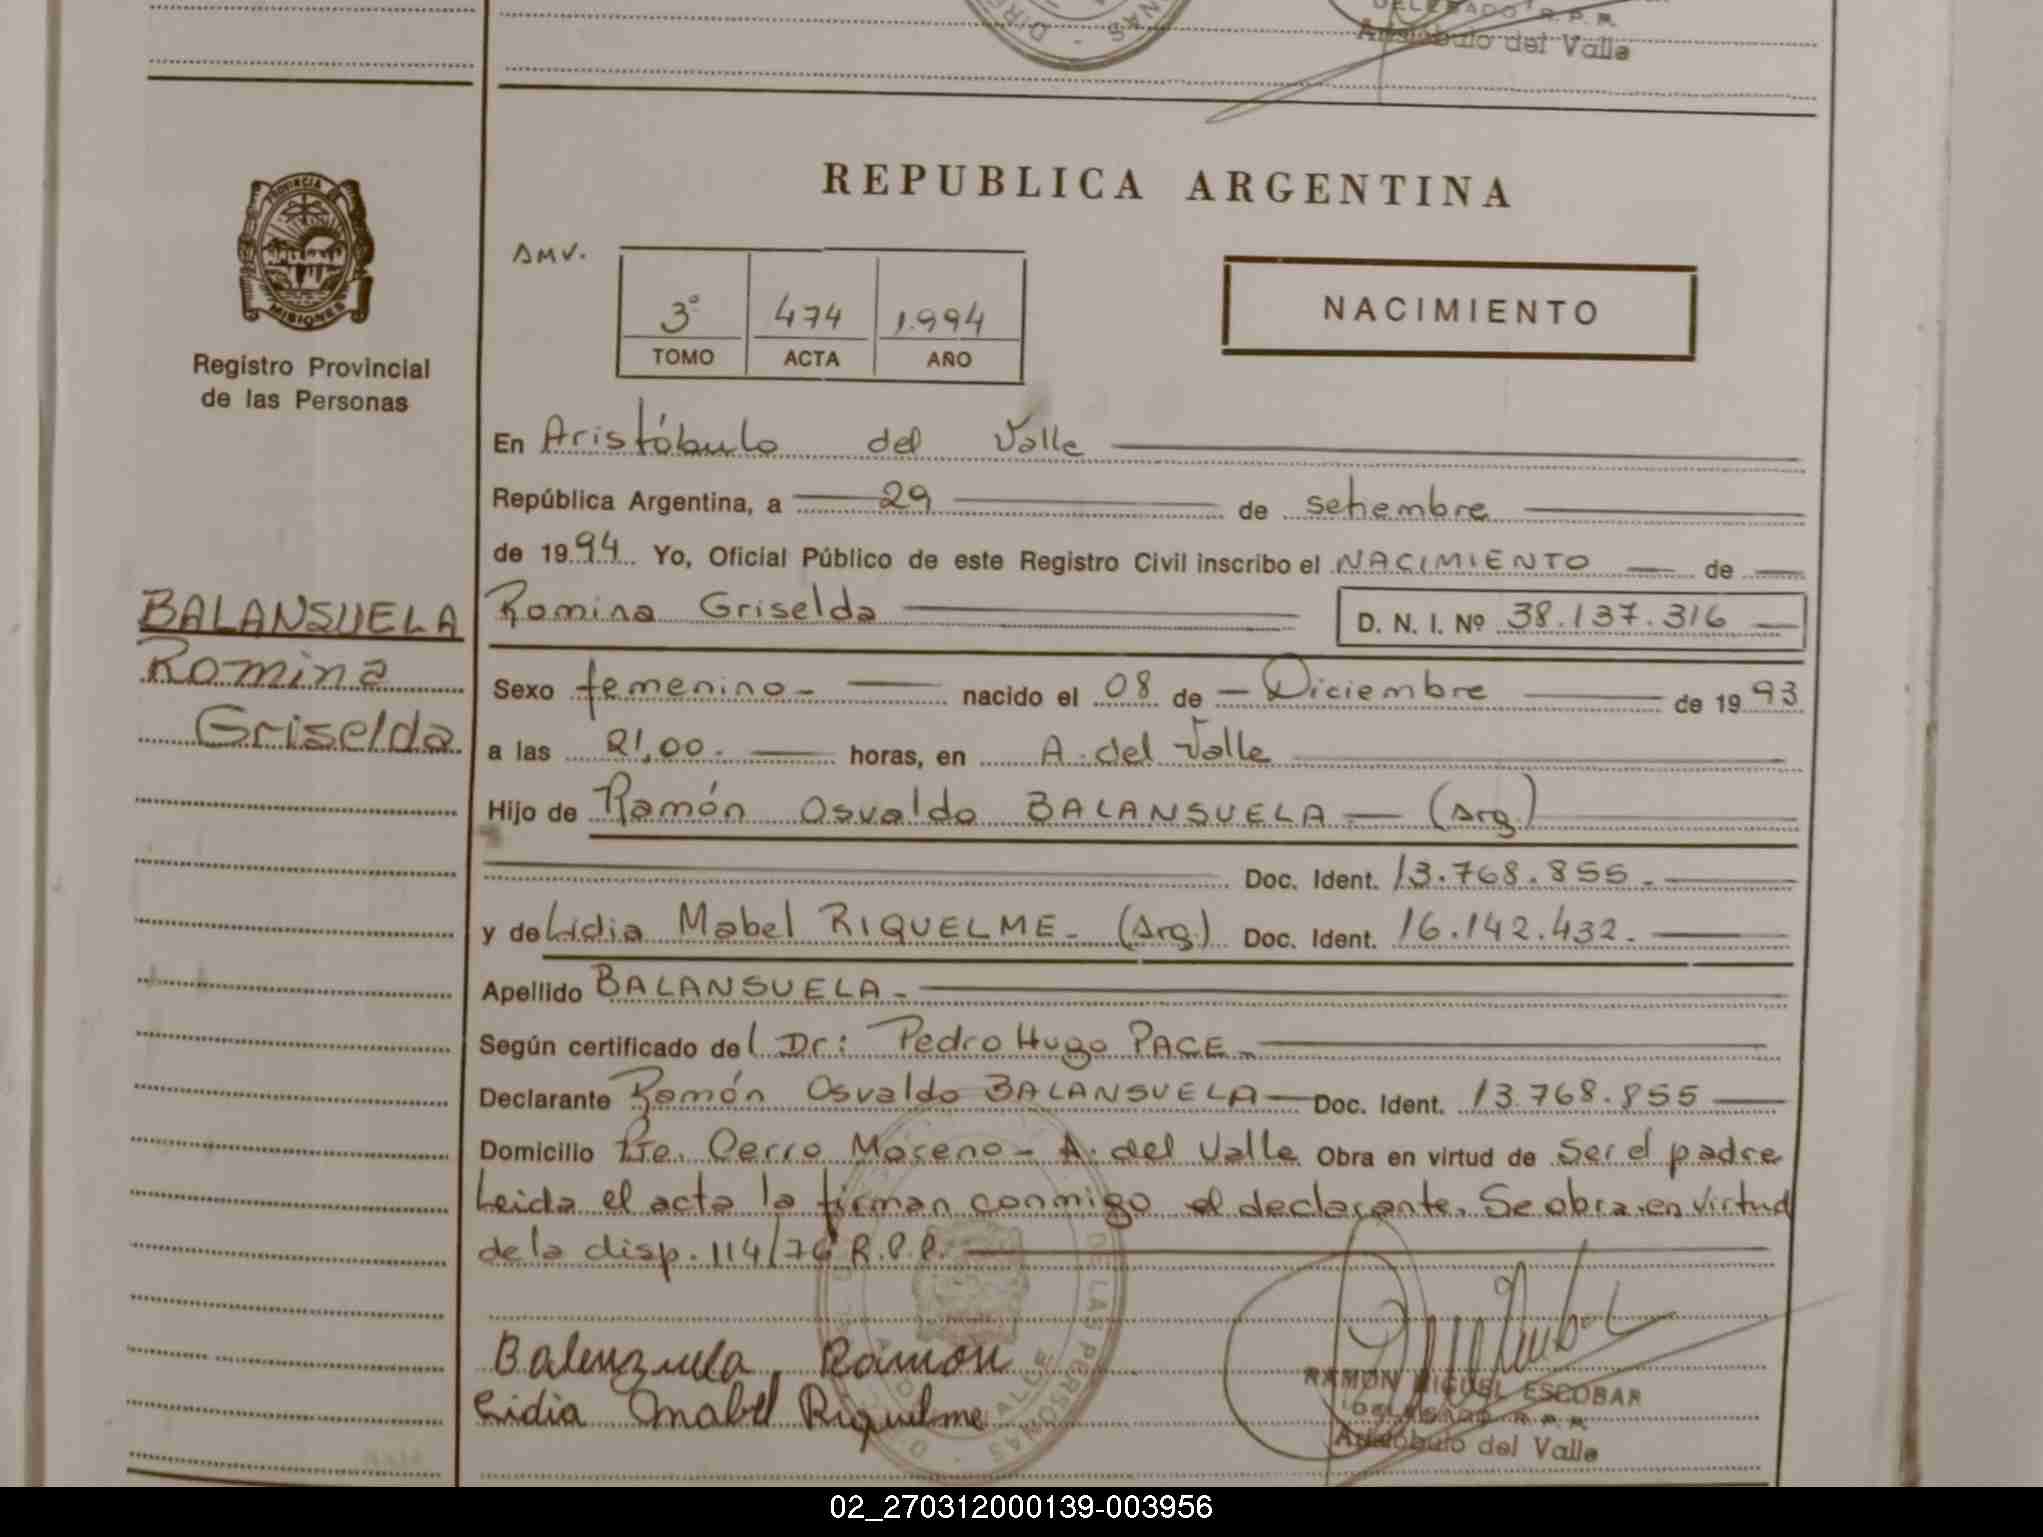 DELEGADO R. P. P.
Aristóbulo del Valle
PROVINCIA
MISIONES
Registro Provincial
de las Personas
REPUBLICA ARGENTINA
3º 474 1.994
TOMO ACTA AÑO
NACIMIENTO
En Aristóbulo del Valle
República Argentina, a 29 de setiembre
de 1994 Yo, Oficial Público de este Registro Civil inscribo el NACIMIENTO de
BALANSUELA
Romina
Griselda
Romina Griselda D. N. I. Nº 38.137.316
Sexo femenino- nacido el 08 de Diciembre de 1993
a las 21,00. horas, en A. del Valle
Hijo de Ramón Osvaldo BALANSUELA (Arg.)
Doc. Ident. 13.768.855.
y de Lidia Mabel RIQUELME- (Arg.) Doc. Ident. 16.142.432.
Apellido BALANSUELA-
Según certificado del Dr: Pedro Hugo PACE
Declarante Ramón Osvaldo BALANSUELA Doc. Ident. 13.768.855
Domicilio Pje. Cerro Moreno - A. del Valle Obra en virtud de Ser el padre
Leida el acta la firman conmigo el declarante. Se obra en virtud
de la disp. 114/76 R.P.P.
Balenzuela Ramon
Lidia Mabel Riquelme
DE LAS PERSONAS
RAMON MIGUEL ESCOBAR
DELEGADO R. P. P.
Aristóbulo del Valle
02_270312000139-003956